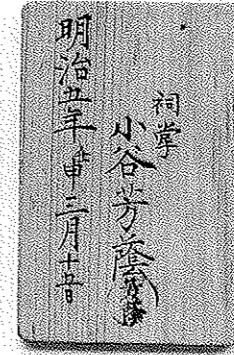 祠掌
小谷芳蔭
明治五年壬申三月十五日